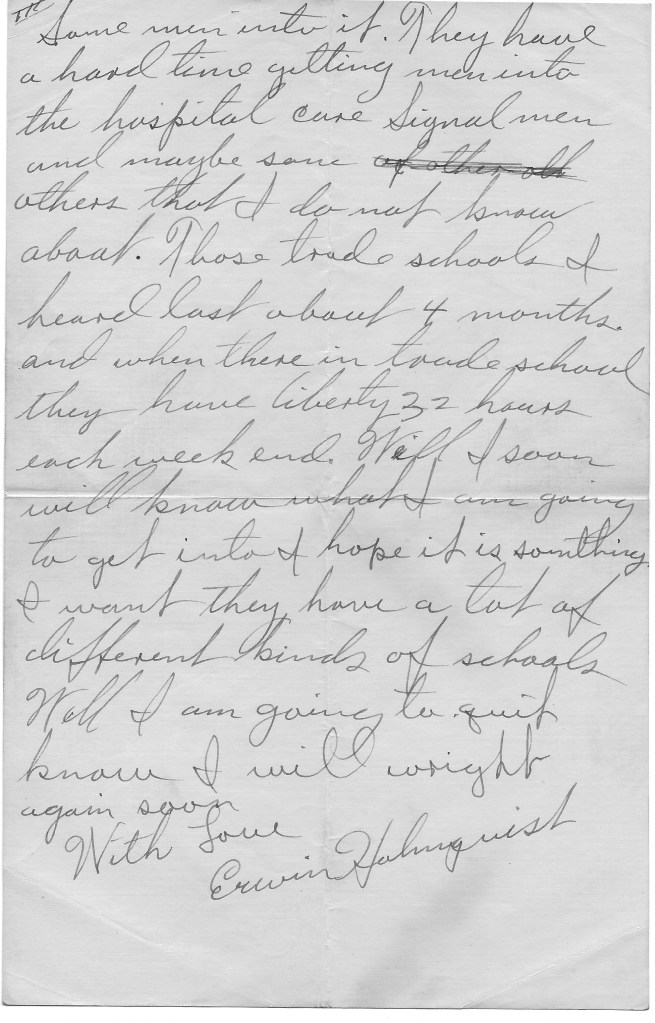 Some men into it. They have
a hard time getting men into
the hospital care Signal men
and maybe some of other
others that I do not know
about. Those trade schools I
heard last about 4 months.
and when there in trade school
they have liberty 32 hours
each week end. Well I soon
will know what I am going
to get into I hope it is somthing
I want they have a lot of
different kinds of schools
Well I am going to quit
know I will wright
again soon
With Love
Erwin Holmquist